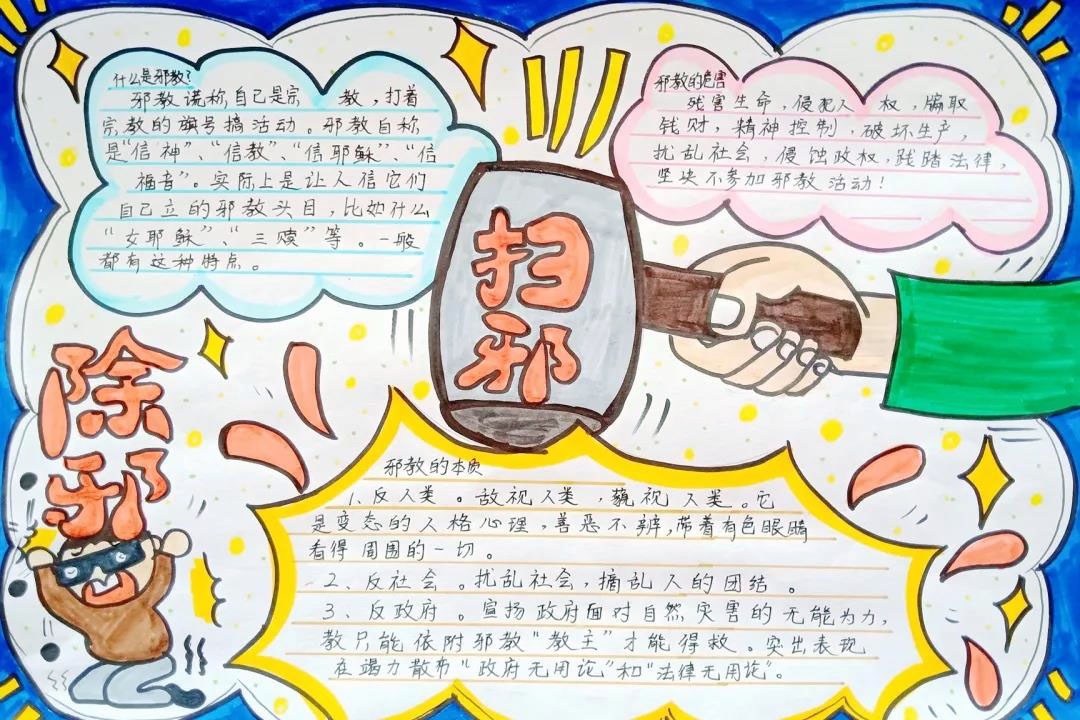 什么是邪教?
邪教谎称自己是宗 教，打着
宗教的旗号搞活动。邪教自称
是“信神”、“信教”、“信耶稣”、“信
福音”。实际上是让人信它们
自己立的邪教头目，比如什么
“女耶稣”、“三赎”等。一般
都有这种特点。
邪教的危害
残害生命，侵犯人 权，骗取
钱财，精神控制，破坏生产，
扰乱社会，侵蚀政权，践踏法律，
坚决不参加邪教活动！
扫
邪
除
邪
邪教的本质
1、反人类。敌视人类，藐视人类。它
是变态的人格心理，善恶不辨，带着有色眼睛
看得周围的一切。
2、反社会。扰乱社会，搞乱人的团结。
3、反政府。宣扬政府面对自然灾害的无能为力，
教只能依附邪教“教主”才能得救。突出表现
在竭力散布“政府无用论”和“法律无用论”。